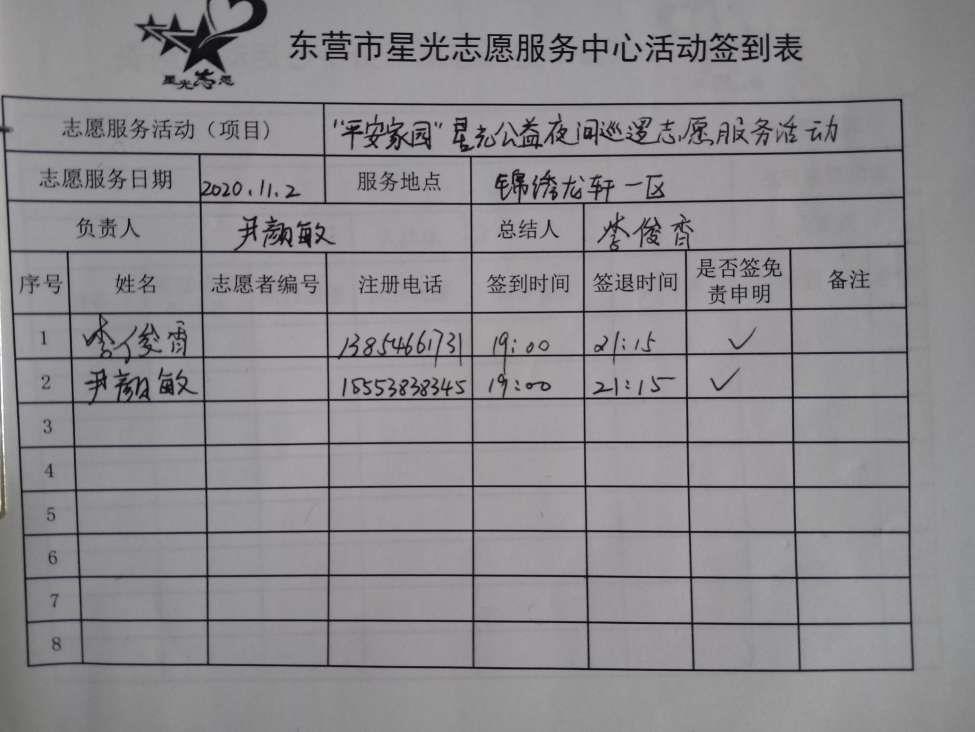 星光志愿
东营市星光志愿服务中心活动签到表
志愿服务活动（项目） "平安家园"星光公益夜间巡逻志愿服务活动
志愿服务日期 2020.11.2 服务地点 锦绣龙轩一区
负责人 尹颜敏 总结人 李俊霄
序号 姓名 志愿者编号 注册电话 签到时间 签退时间 是否签免责申明 备注
1 李俊霄 13854661731 19:00 21:15 ✓
2 尹颜敏 15553838345 19:00 21:15 ✓
3
4
5
6
7
8